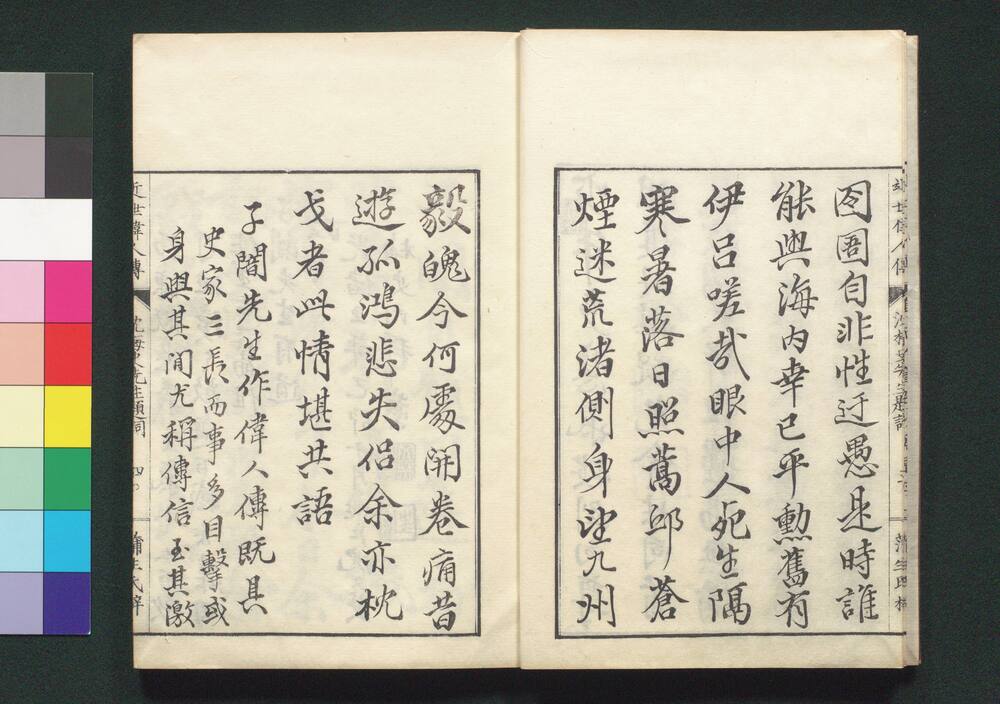 囹圄自非性迂愚是時誰
能與海内幸已平勲舊有
伊呂嗟哉眼中人死生隔
寒暑落日照蒿邱蒼
煙迷荒渚側身望九州
毅魄今何處開巻痛昔
遊孤鴻悲失侶余亦枕
戈者此情堪共語
子闇先生作偉人傳既具
史家三長而事多目擊或
身與其間尤稱傳信至其激
近世偉人傳
四
蒲生氏